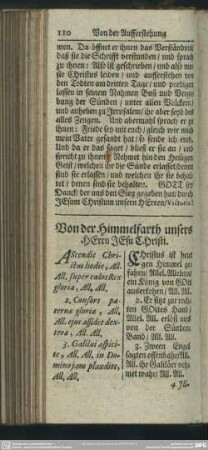 110 Von der Aufferstehung
men. Da öffnet er ihnen das Verständniß
daß sie die Schrifft verstunden / und sprach
zu ihnen: Also ist geschrieben / und also mu
ste Christus leiden / und aufferstehen von
den Todten am dritten Tage / und predigen
lassen in seinem Nahmen Buß und Verge
bung der Sünden / unter allen Völckern /
und anheben zu Jerusalem / ihr aber seyd des
alles Zeugen. Und abermahl sprach er zu
ihnen: Friede sey mit euch / gleich wie mich
mein Vater gesandt hat / so sende ich euch.
Und da er das saget / bließ er sie an / und
spricht zu ihnen: Nehmet hin den Heiligen
Geist / welchen ihr die Sünde erlasset / denen
sind sie erlassen / und welchen ihr sie behal
tet / denen sind sie behalten. GOTT sey
Danck der uns den Sieg gegeben hat / durch
JEsum Christum unsern HErren / Victoria!
Von der Himmelfarth unsers
HErrn JEsu Christi.
AScendit Chri-
stus hodie, All.
All. super cœlos Rex
gloriæ, All, All,
2. Consors pa-
ternæ gloriæ, All,
All. ejus assidet dex-
teræ, All. All.
3. Galilæi aspici-
te, All, All. in Do-
mino jam plaudite,
All, All,
CHristus ist heut
gen Himmel ge-
fahrn / Allel. Alleluia
ein König von GOtt
auserkohren / All. All.
2. Er sitzt zur rechten
GOttes Hand /
Allel. All. erlöst uns
von der Sünden
Band / All. All.
3. Zween Engel
sagten offenbahr / All.
All. Ihr Galiläer neh-
met wahr / All. All.